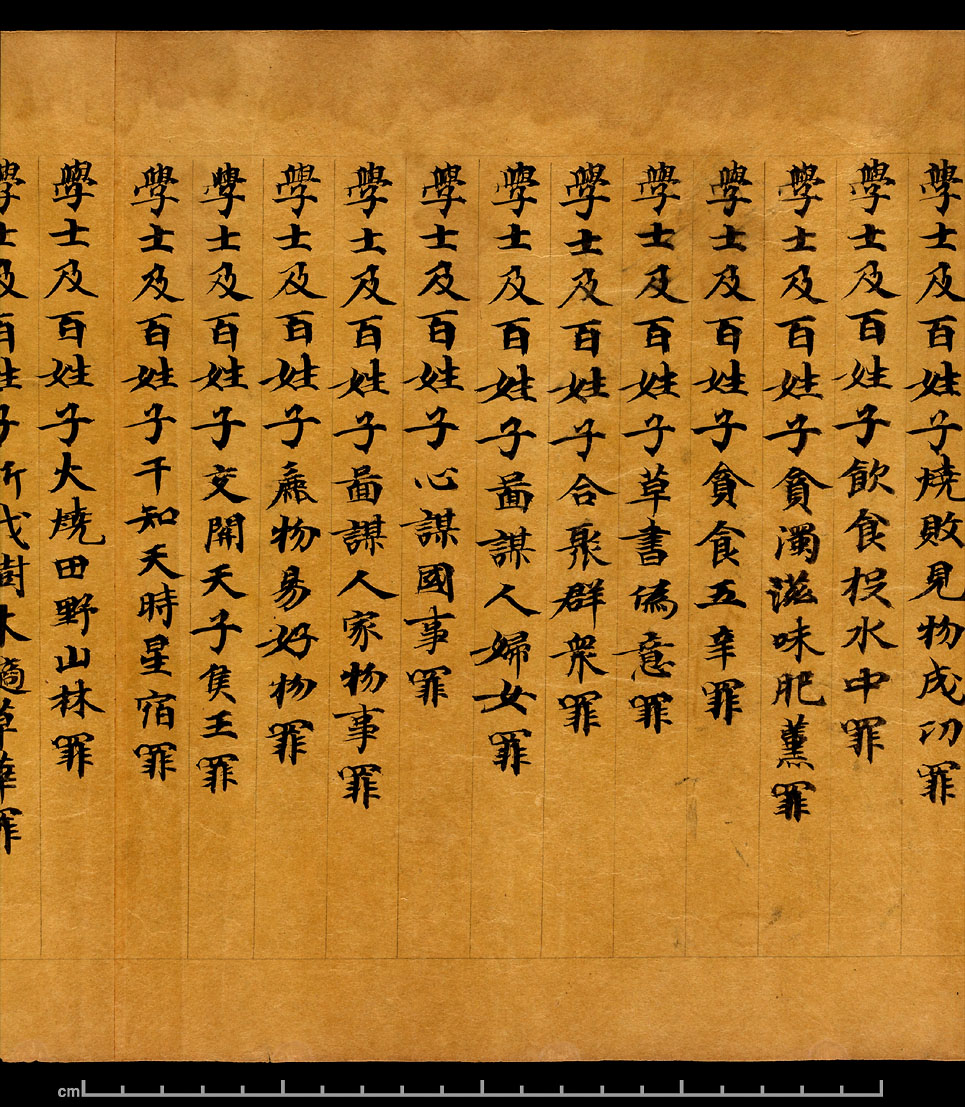 學士及百姓子燒敗見物成功罪
學士及百姓子飲食投水中罪
學士及百姓子貪濁滋味肥薰罪
學士及百姓子貪食五辛罪
學士及百姓子草書偽意罪
學士及百姓子合聚群衆罪
學士及百姓子啚謀人婦女罪
學士及百姓子心謀國事罪
學士及百姓子啚謀人家物事罪
學士及百姓子麁物易好物罪
學士及百姓子交關天子侯王罪
學士及百姓子干知天時星宿罪
學士及百姓子火燒田野山林罪
學士及百姓子斫伐樹木擿草華罪
cm